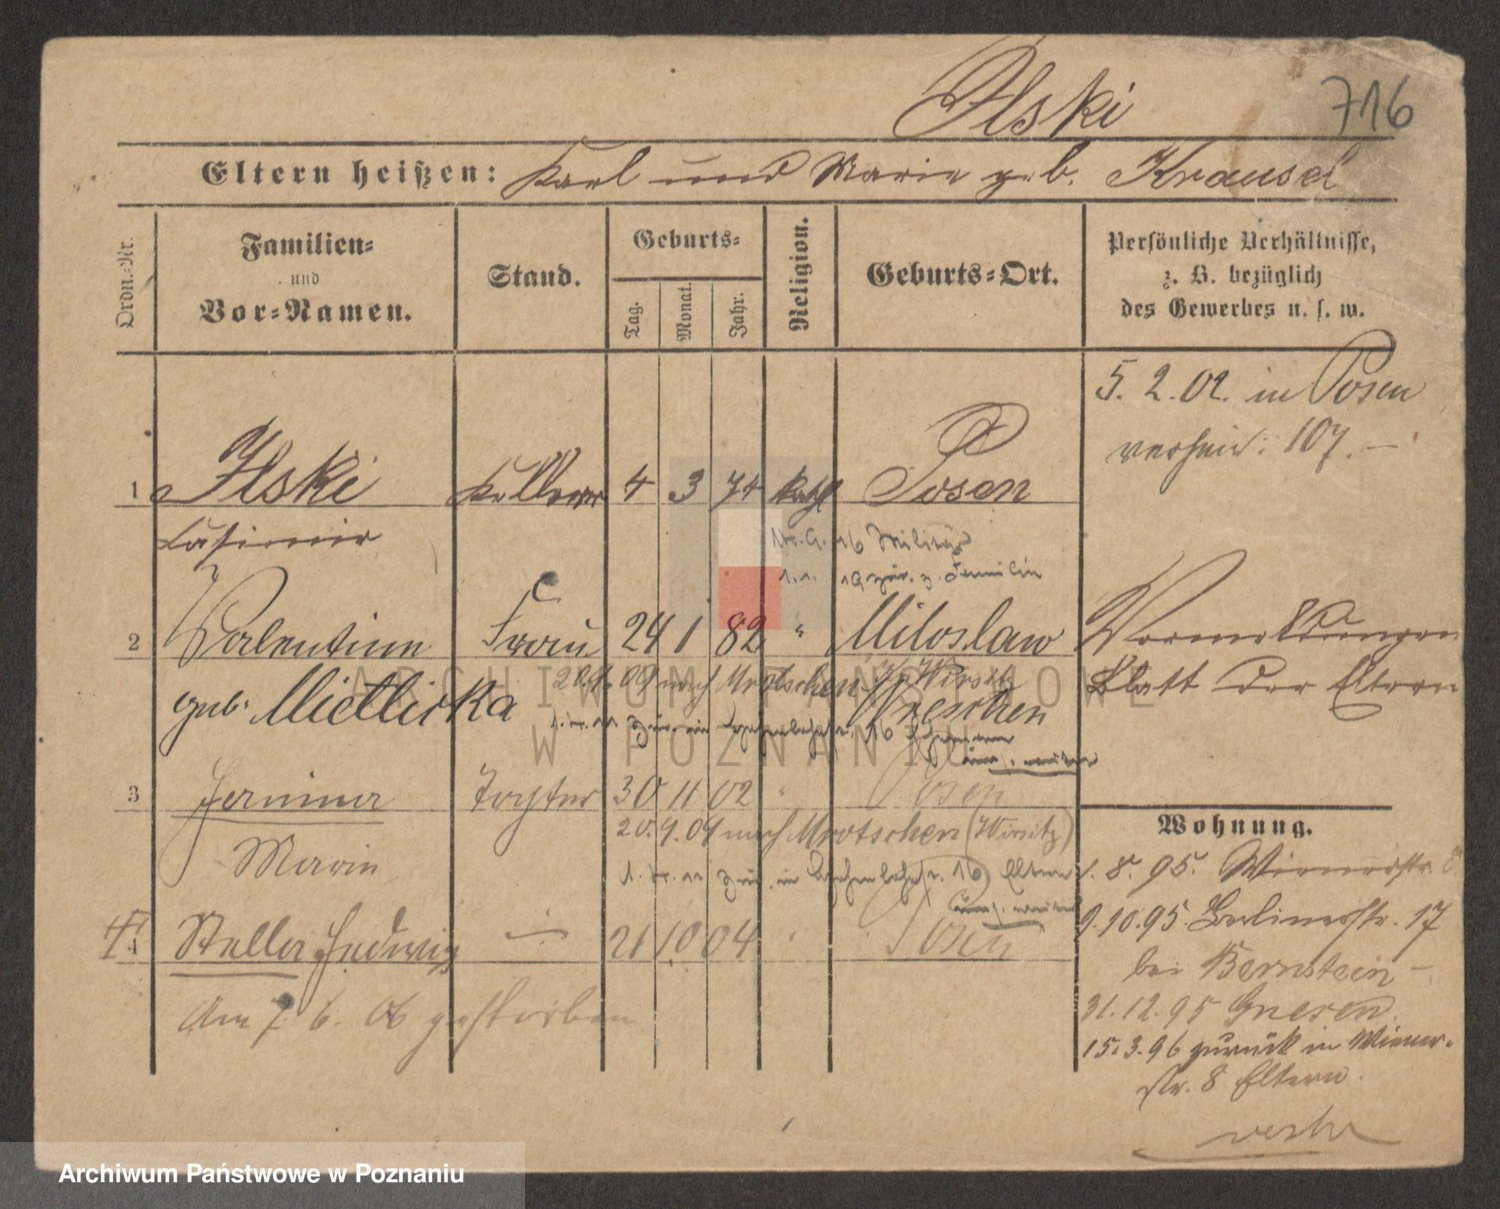 Ilski
716
Eltern heißen: Karl und Marie geb. Krause
Ordn.-Nr.
Familien-
und
Vor-Namen.
Stand.
Geburts-
Tag.
Monat.
Jahr.
Religion.
Geburts-Ort.
Persönliche Verhältnisse,
z. B. bezüglich
des Gewerbes u. s. w.
5. 2. 02. in Posen
verheir: 107. —
1 Ilski Kellner 4 3 74 kath Posen
Casimir
16 Militär
1.1. 19 zur. z. Familie
2 Valentine Frau 24 1 82 " Miloslaw
Vormeldungen
Blatt der Eltern
nach Mrotschen Kr. Wirsitz
geb. Mietlicka
Wreschen
3 Tochter 30 11 02 " Posen
20.9.09 nach Mrotschen (Wirsitz)
Marie
16 Eltern
4 Stella Hedwig 21 10 04 Posen
Am 7. 6. 06 gestorben
Wohnung.
1. 8. 95. Wienerstr. 8
9.10.95. Berlinerstr. 17
bei Bernstein —
31.12.95 Gnesen.
15.3.96 zurück in Wiener-
str. 8 Eltern.
ARCHIWUM PAŃSTWOWE
W POZNANIU
Archiwum Państwowe w Poznaniu